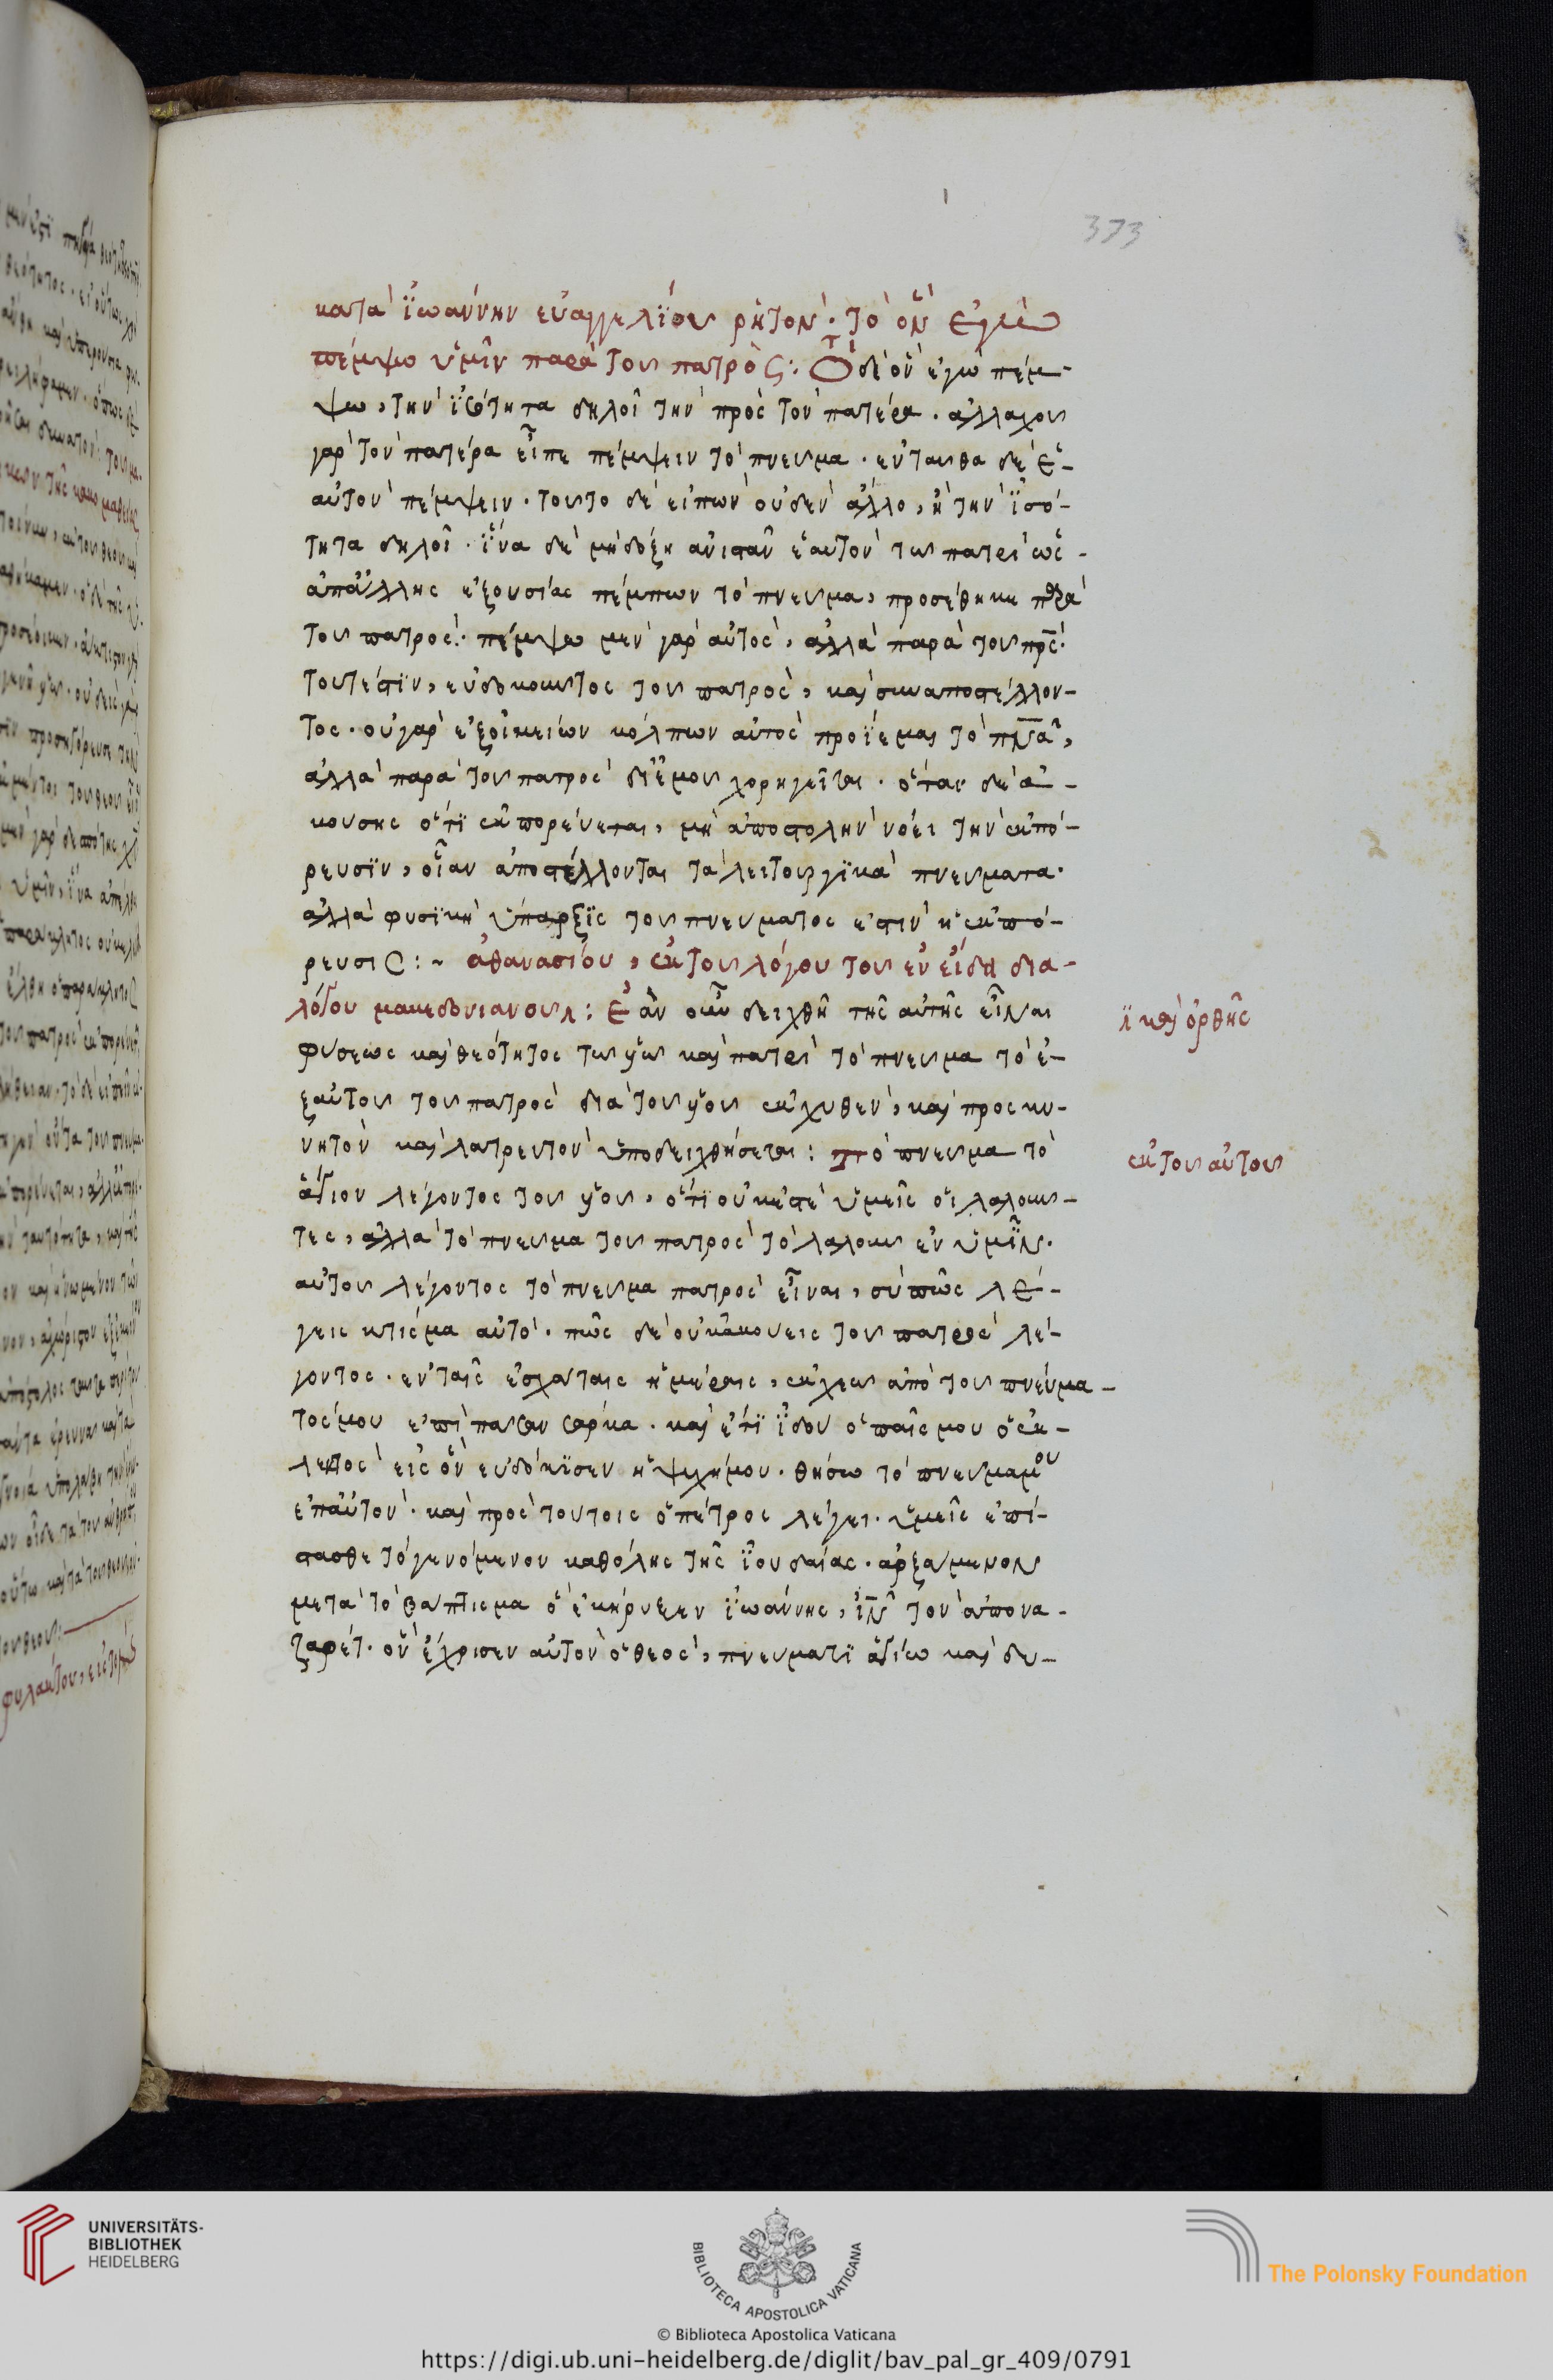 373
κατὰ ἰωάννην εὐαγγελίου ρητὸν· τὸ ὃν ἐγὼ
πέμψω ὑμῖν παρὰ τοῦ πατρὸς: Τὸ δὲ ὃν ἐγὼ πέμ-
ψω, τὴν ἰσότητα δηλοῖ τὴν πρὸς τὸν πατέρα. ἀλλαχοῦ
γὰρ τὸν πατέρα εἶπε πέμψειν τὸ πνεῦμα. ἐνταῦθα δὲ ἑ-
αυτὸν πέμψειν. τοῦτο δὲ εἰπὼν οὐδὲν ἄλλο, ἢ τὴν ἰσό-
τητα δηλοῖ. ἵνα δὲ μὴ δόξη ἀνιστᾶν ἑαυτὸν τῶ πατρὶ ὡς
ἀπ' ἄλλης ἐξουσίας πέμπων τὸ πνεῦμα, προσέθηκε παρὰ
τοῦ πατρός. πέμψω μὲν γὰρ αὐτὸς, ἀλλὰ παρὰ τοῦ πρς.
τουτέστιν, εὐδοκοῦντος τοῦ πατρὸς, καὶ συναποστέλλον-
τος. οὐ γὰρ ἐξ οἰκείων κόλπων αὐτὸς προΐεμαι τὸ πνα,
ἀλλὰ παρὰ τοῦ πατρὸς δι' ἐμοῦ χορηγεῖται. ὅταν δὲ ἀ-
κούσης ὅτι ἐκπορεύεται, μὴ ἀποστολὴν νόει τὴν ἐκπό-
ρευσιν, οἵαν ἀποστέλλονται τὰ λειτουργικὰ πνεύματα.
ἀλλὰ φυσικὴ ὕπαρξις τοῦ πνεύματος ἐστὶν ἡ ἐκπό-
ρευσις:~ ἀθανασίου, ἐκ τοῦ λόγου τοῦ ἐν εἴδει δια-
λόγου μακεδονιανοῦ: Ἐὰν οὖν δειχθῆ τῆς αὐτῆς εἶναι
ϗ καὶ ὀρθῆς
φύσεως καὶ θεότητος τῶ υἱῶ καὶ πατρὶ τὸ πνεῦμα τὸ ἐ-
ξ αὐτοῦ τοῦ πατρὸς διὰ τοῦ υἱοῦ ἐκχυθὲν, καὶ προσκυ-
νητὸν καὶ λατρευτὸν ὑποδειχθήσεται: Τὸ πνεῦμα τὸ
ἐκ τοῦ αὐτοῦ
ἅγιον λέγοντος τοῦ υἱοῦ, ὅτι οὐκ ἐστὲ ὑμεῖς οἱ λαλοῦν-
τες, ἀλλὰ τὸ πνεῦμα τοῦ πατρὸς τὸ λαλοῦν ἐν ὑμῖν.
αὐτοῦ λέγοντος τὸ πνεῦμα πατρὸς εἶναι, σὺ πῶς λέ-
γεις κτίσμα αὐτό. πῶς δὲ οὐκ ἀκούεις τοῦ πατρὸς λέ-
γοντος. ἐν ταῖς ἐσχάταις ἡμέραις, ἐκχεῶ ἀπὸ τοῦ πνεύμα-
τός μου ἐπὶ πᾶσαν σάρκα. καὶ ἔτι ἰδοὺ ὁ παῖς μου ὁ ἐκ-
λεκτὸς εἰς ὃν εὐδόκισεν ἡ ψυχή μου. θήσω τὸ πνεῦμα μου
ἐπ' αὐτόν. καὶ πρὸς τούτοις ὁ πέτρος λέγει. ὑμεῖς ἐπί-
στασθε τὸ γενόμενον καθόλης τῆς ἰουδαίας. ἀρξάμενον
μετὰ τὸ βάπτισμα ὃ ἐκήρυξεν ἰωάννης, ιν τὸν ἀπὸ να-
ζαρέτ. ὃν ἔχρισεν αὐτὸν ὁ θεὸς, πνεύματι ἁγίω καὶ δυ-
UNIVERSITÄTS-
BIBLIOTHEK
HEIDELBERG
BIBLIOTECA APOSTOLICA VATICANA
The Polonsky Foundation
© Biblioteca Apostolica Vaticana
https://digi.ub.uni-heidelberg.de/diglit/bav_pal_gr_409/0791